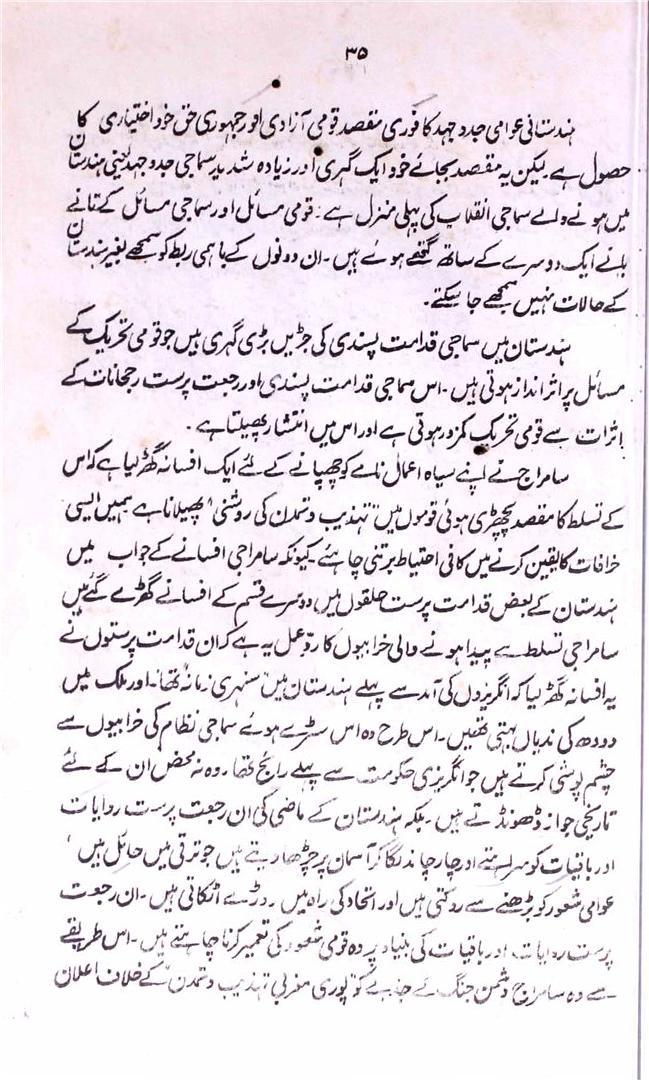 ۳۵
ہندستانی عوامی جدوجہد کا فوری مقصد قومی آزادی اور جمہوری حق خود اختیاری کا
حصول ہے۔ لیکن یہ مقصد بجائے خود ایک گہری اور زیادہ شدید سماجی جدوجہد یعنی ہندستان
میں ہونے والے سماجی انقلاب کی پہلی منزل ہے۔ قومی مسائل اور سماجی مسائل کے تانے
بانے ایک دوسرے کے ساتھ گتھے ہوئے ہیں۔ ان دونوں کے باہمی ربط کو سمجھے بغیر ہندستان
کے حالات نہیں سمجھے جا سکتے۔
ہندستان میں سماجی قدامت پسندی کی جڑیں بڑی گہری ہیں جو قومی تحریک کے
مسائل پر اثر انداز ہوتی ہیں۔ اس سماجی قدامت پسندی اور رجعت پرست رجحانات کے
اثرات سے قومی تحریک کمزور ہوتی ہے اور اس میں انتشار پھیلتا ہے۔
سامراج نے اپنے سیاہ اعمال نامے کو چھپانے کے لئے ایک افسانہ گھڑ لیا ہے کہ اس
کے تسلط کا مقصد پچھڑی ہوئی قوموں میں ”تہذیب و تمدن کی روشنی“ پھیلانا ہے ہمیں ایسی
خرافات کا یقین کرنے میں کافی احتیاط برتنی چاہئے۔ کیونکہ سامراجی افسانے کے جواب میں
ہندستان کے بعض قدامت پرست حلقوں میں دوسرے قسم کے افسانے گھڑے گئے ہیں
سامراجی تسلط سے پیدا ہونے والی خرابیوں کا ردّعمل یہ ہے کہ ان قدامت پرستوں نے
یہ افسانہ گھڑ لیا کہ انگریزوں کی آمد سے پہلے ہندستان میں ”سنہری زمانہ“ تھا۔ اور ملک میں
دودھ کی ندیاں بہتی تھیں۔ اس طرح وہ اس سڑے ہوئے سماجی نظام کی خرابیوں سے
چشم پوشی کرتے ہیں جو انگریزی حکومت سے پہلے رایج تھا۔ وہ نہ محض ان کے لئے
تاریخی جواز ڈھونڈتے ہیں۔ بلکہ ہندستان کے ماضی کی ان رجعت پرست روایات
اور باقیات کو سراہتے اور چار چاند لگا کر آسمان پر چڑھا دیتے ہیں جو ترقی میں حائل ہیں،
عوامی شعور کو بڑھنے سے روکتی ہیں اور اتحاد کی راہ میں روڑے اٹکاتی ہیں۔ ان رجعت
پرست روایات اور باقیات کی بنیاد پر وہ قومی شعور کی تعمیر کرنا چاہتے ہیں۔ اس طریقے
سے وہ سامراج دشمن جنگ کے جذبے کو ”پوری مغربی تہذیب و تمدن“ کے خلاف اعلان